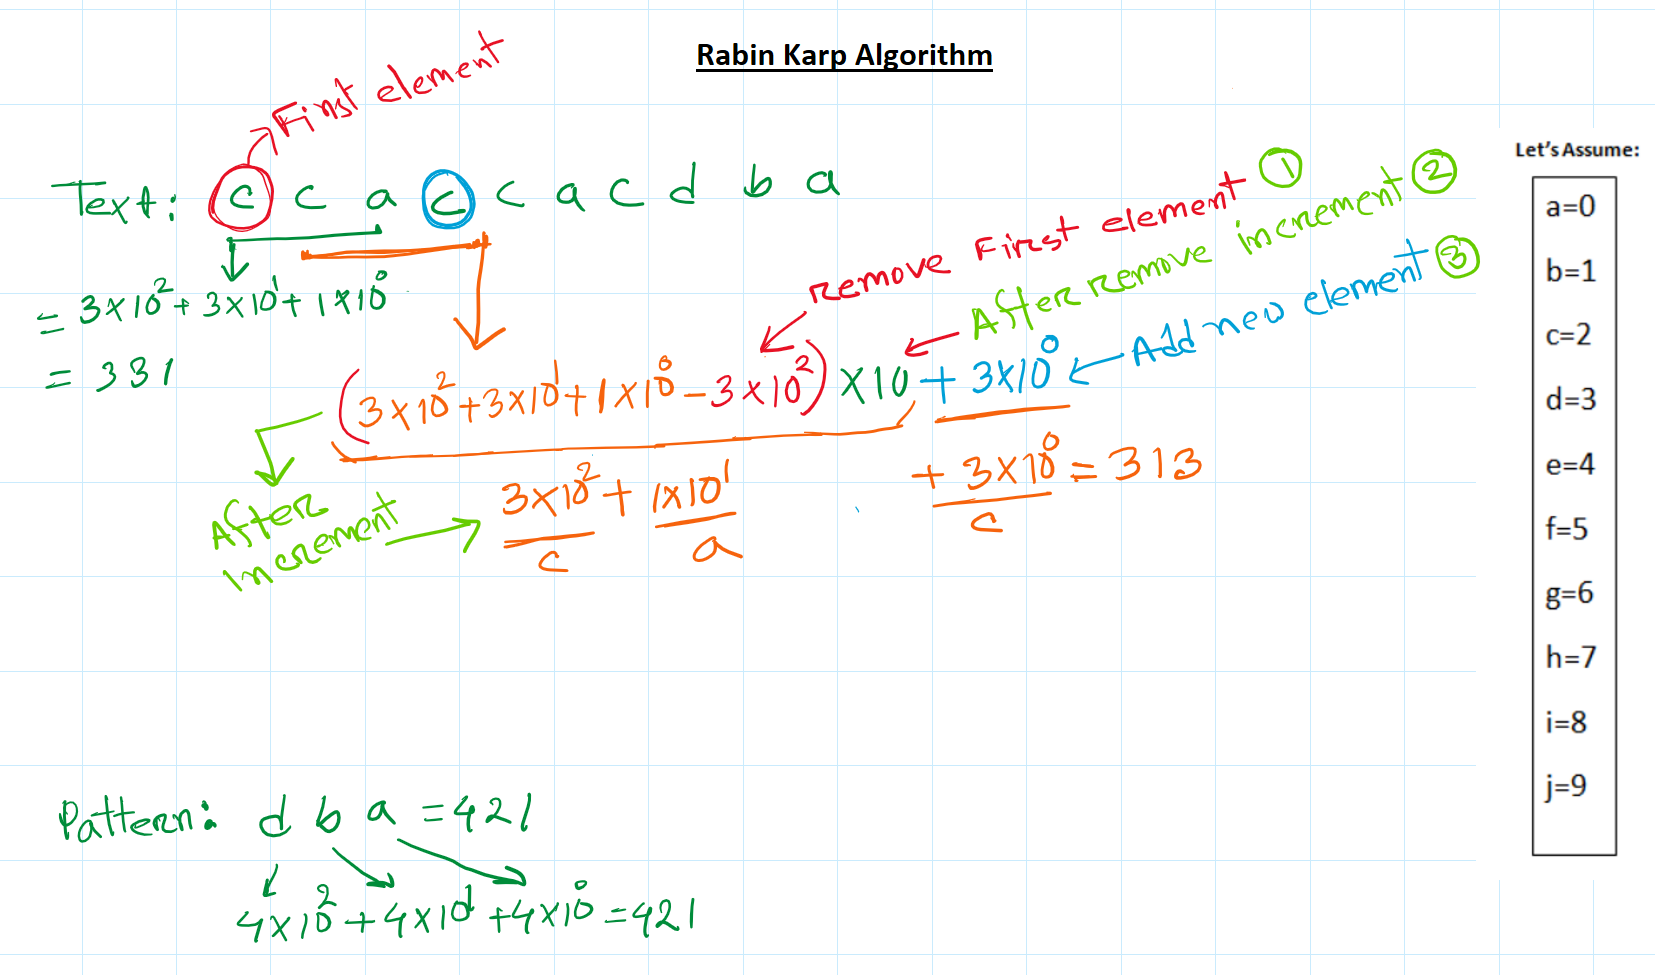 Rabin Karp Algorithm
First element
Text: c c a c c a c d b a
= 3×10² + 3×10¹ + 1×10⁰
= 331
remove First element ①
After remove increment ②
Add new element ③
(3×10² + 3×10¹ + 1×10⁰ - 3×10²) ×10 + 3×10⁰
After increment
3×10² + 1×10¹ + 3×10⁰ = 313
c a c
Pattern: d b a = 421
4×10² + 4×10¹ + 4×10⁰ = 421
Let's Assume:
a=0
b=1
c=2
d=3
e=4
f=5
g=6
h=7
i=8
j=9